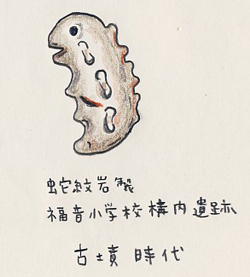 蛇紋岩製
福音小学校構内遺跡
古墳時代